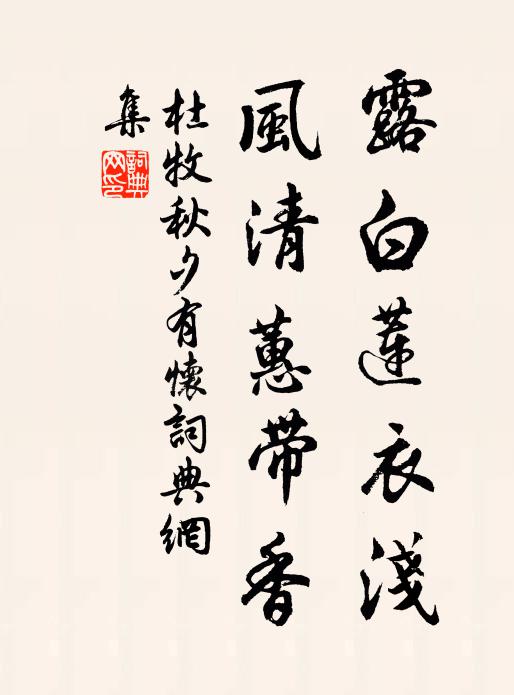 露白蓮衣淺
風清蕙帶香
杜牧秋夕有懷詞典網
集
詞典網印